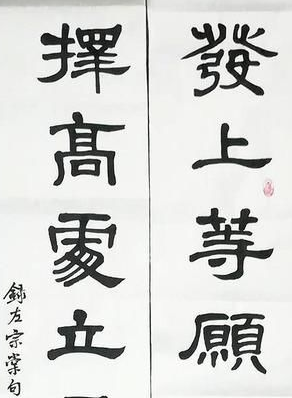 發上等願
擇高處立
錄左宗棠句